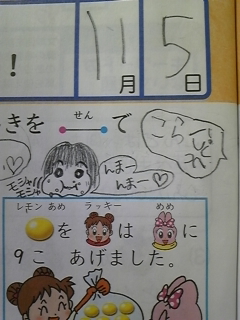 ！ 11月 5日
きを せん で
こらー！ それ
モシャ
モシャ
んまー
んまー♡
レモン あめ ラッキー めめ
を は に
9こ あげました。